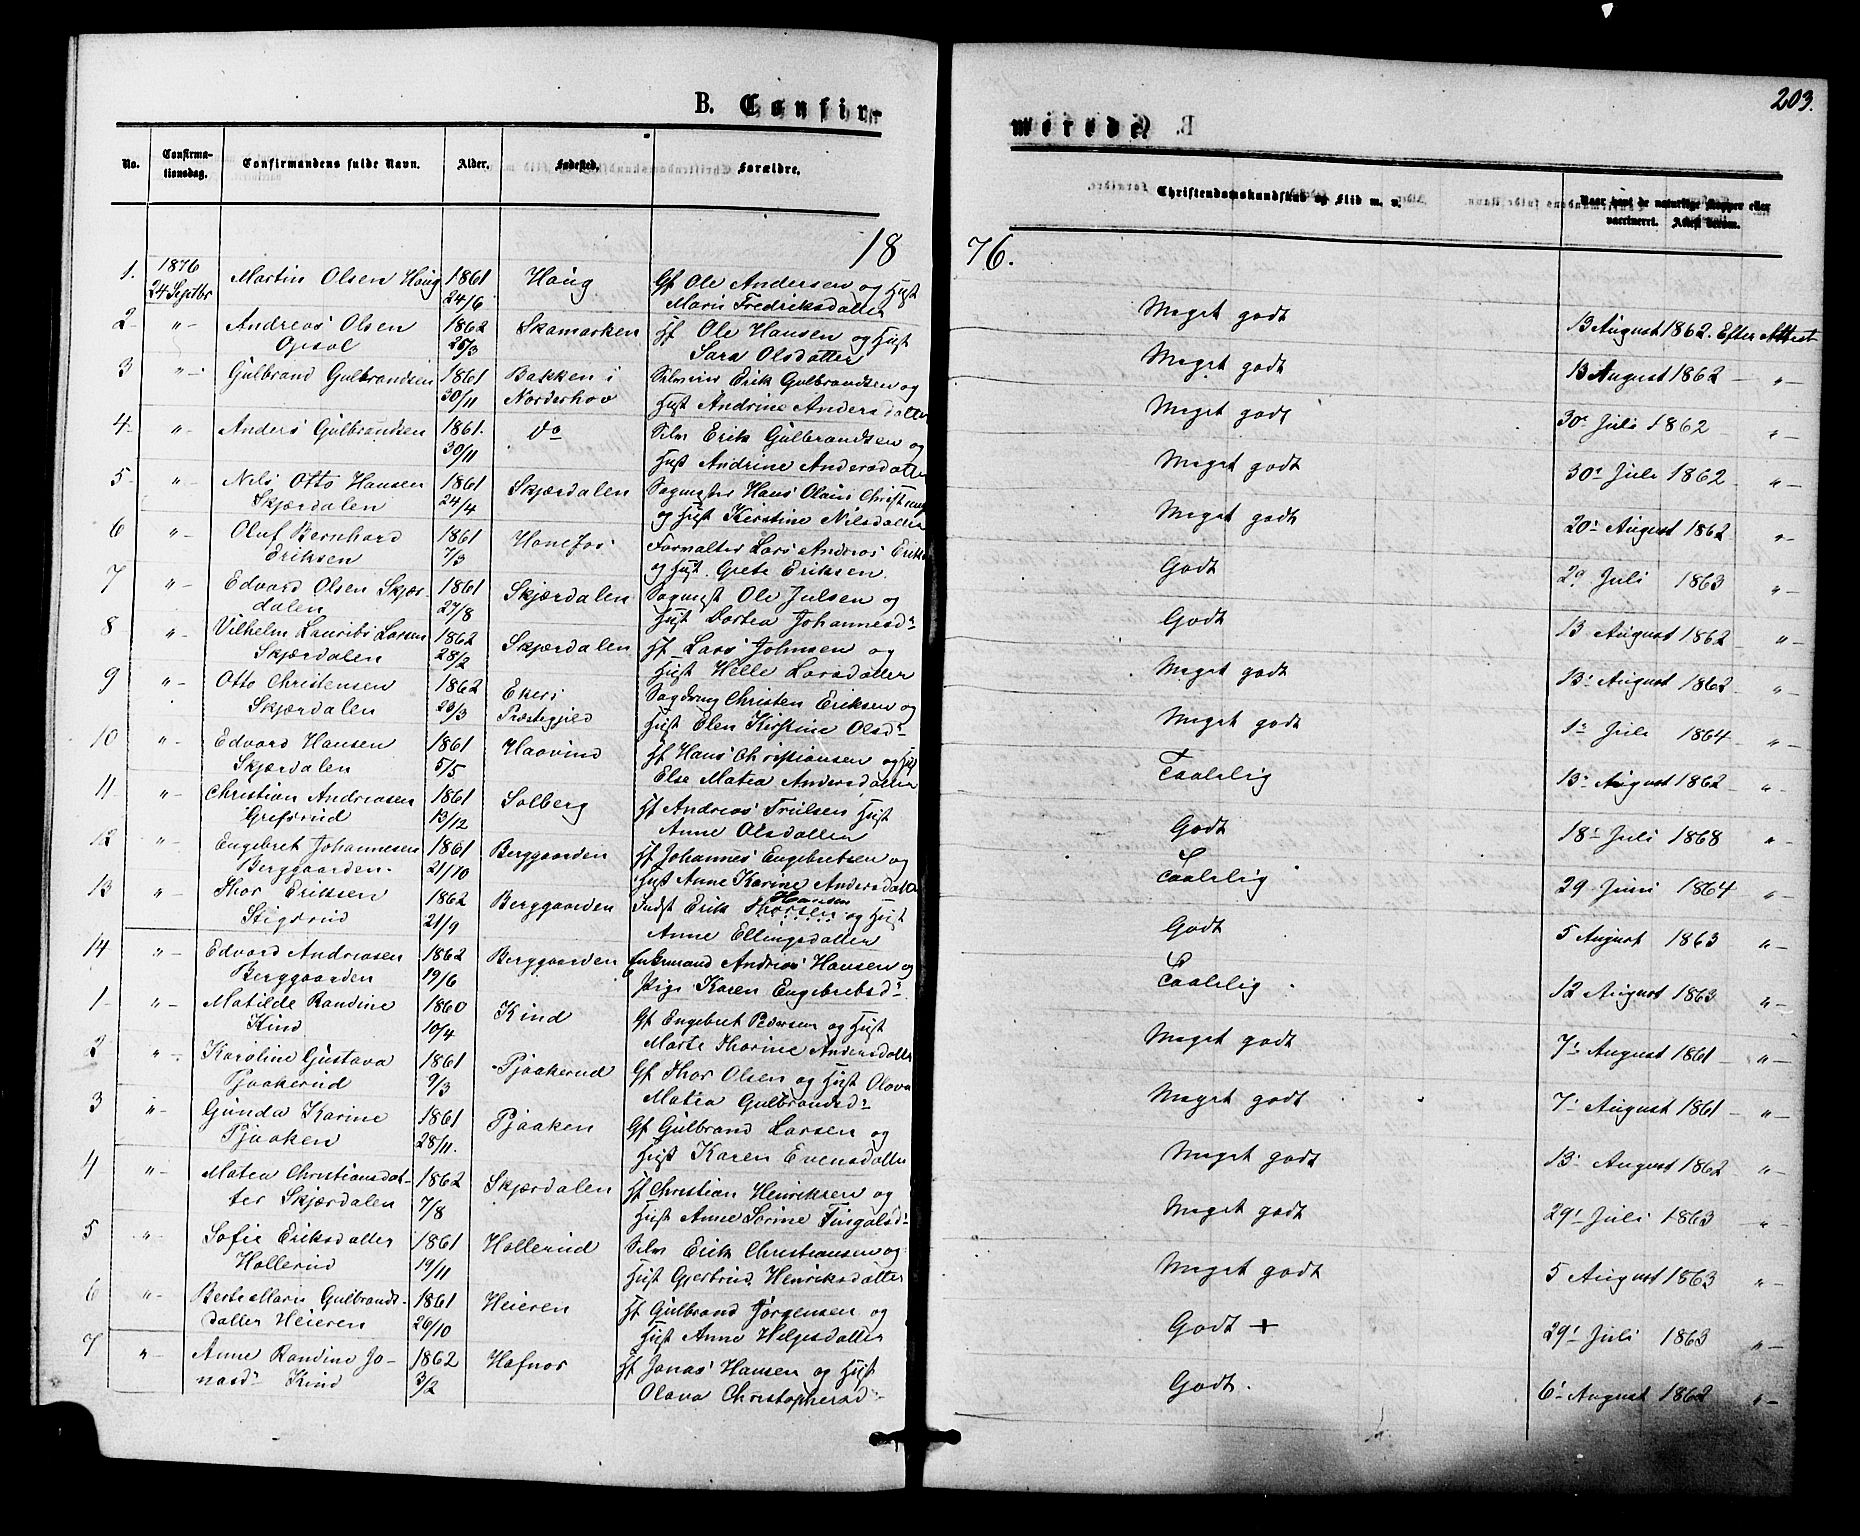 203.
B. Confir-
mirede.
No.
Confirma-
tionsdag.
Confirmandens fulde Navn.
Alder.
Fødested.
Forældre.
Christendomskundskab og Flid m. v.
Naar havt de naturlige Kopper eller
vaccineret. Attest derom.
18
76.
1. 1876 Martin Olsen Haug 1861 Haug Gf Ole Andersen og Hust
24 Septbr 24/6 Maris Fredriksdatter Meget godt 13 August 1862. Efter Attest
2- "- Andreas Olsen 1862 Skamarken Hf Ole Hansen og Hust
25/3 Sara Olsdatter Meget godt 13 August 1862 - "-
3 "- Gulbrand Gulbrandsen 1861 Bakken i Selveier Erik Gulbrandsen og
30/11 Norderhov Hust Andrine Andersdatter Meget godt 30' Juli 1862 "-
4- "- Anders Gulbrandsen 1861. Do Selv Erik Gulbrandsen og
30/11 Hust Andrine Andersdatter Meget godt 30' Juli 1862 - "-
5- "- Nils Otto Hansen 1861 Skjærdalen Sagmester Hans Olaus
Skjærdalen 24/4 og Hust Kirstine Nilsdatter Meget godt 20' August 1862 "-
6 "- Oluf Bernhard 1861 Honefos Forvalter Lars Andreas
Eriksen 7/3 og Hust. Grete Eriksen. Godt 29 Juli 1863 "-
7 "- Edvard Olsen Skjær- 1861 Skjærdalen Sagmest Ole Julsen og
dalen 27/8 Hust Dortea Johannesd Godt 13 August 1862 "-
8 "- Vilhelm Laurits Larsen 1862 Skjærdalen Hf Lars Johnsen og
Skjærdalen 28/2 Hust Helle Larsdatter Meget godt 13' August 1862 "-
9 "- Otto Christensen 1862 Ekers Sagdreng Christen Eriksen og
Skjærdalen 23/3 Præstegjeld Hust Elen Kirstine Olsd Meget godt 1' Juli 1864 - "-
10 "- Edvard Hansen 1861 Haavind Hf Hans Christiansen og Hust
Skjærdalen 5/5 Else Matea Andersdatter Taalelig 13' August 1862 "-
11- "- Christian Andreasen 1861 Solberg Hf Andreas Trulsen Hust
Grefsrud 13/12 Anne Olsdatter Godt 18' Juli 1868 "-
12 "- Engebret Johannesen 1861 Berggaarden Hf Johannes Engebretsen og
Berggaarden. 21/10 Hust Anne Karine Andersdatter Taalelig 29 Juni 1864 "-
13 "- Thor Eriksen 1862 Berggaarden Indst Erik Thorsen Hansen og Hust
Stigsrud 21/9 Anne Ellingsdatter Godt 5 August 1863 "-
14 "- Edvard Andreasen 1862 Berggaarden Enkemand Andreas Hansen og
Berggaarden 19/6 Pige Karen Engebretsd Taalelig. 12 August 1863 "-
1- "- Matilde Randine 1860 Kind Gf Engebret Pedersen og Hust
Kind 10/4 Marte Thorine Andersdatter Meget godt 7' August 1861 "-
2 "- Karoline Gustava 1861 Pjaakerud Gf Thor Olsen og Hust Olava
Pjaakerud 9/3 Matea Gulbrandsd Meget godt 7' August 1861 - "-
3 "- Gunda Karine 1861 Pjaaken Gf Gulbrand Larsen og
Pjaaken 28/11. Hust Karen Evensdatter Meget godt 13' August 1862 "-
4 "- Matea Christiansdat- 1862 Skjærdalen Hf Christian Henriksen og
ter Skjærdalen 7/8 Hust Anne Sorine Fingalsd Meget godt 29' Juli 1863 - "-
5 "- Sofie Eriksdatter 1861 Hollerud Selv Erik Christiansen og
Hollerud 19/11 Hust Gjertrud Henriksdatter Meget godt 5 August 1863 "-
6 "- Berte Marie Gulbrands- 1861 Heieren Hf Gulbrand Jørgensen og
datter Heieren 26/10 Hust Anne Helgesdatter Godt + 29' Juli 1863 "-
7 "- Anne Randine Jo- 1862 Hafnor Hf Jonas Hansen og Hust
nasd Kind 3/2 Olava Christophersd Godt. 6' August 1862 "-